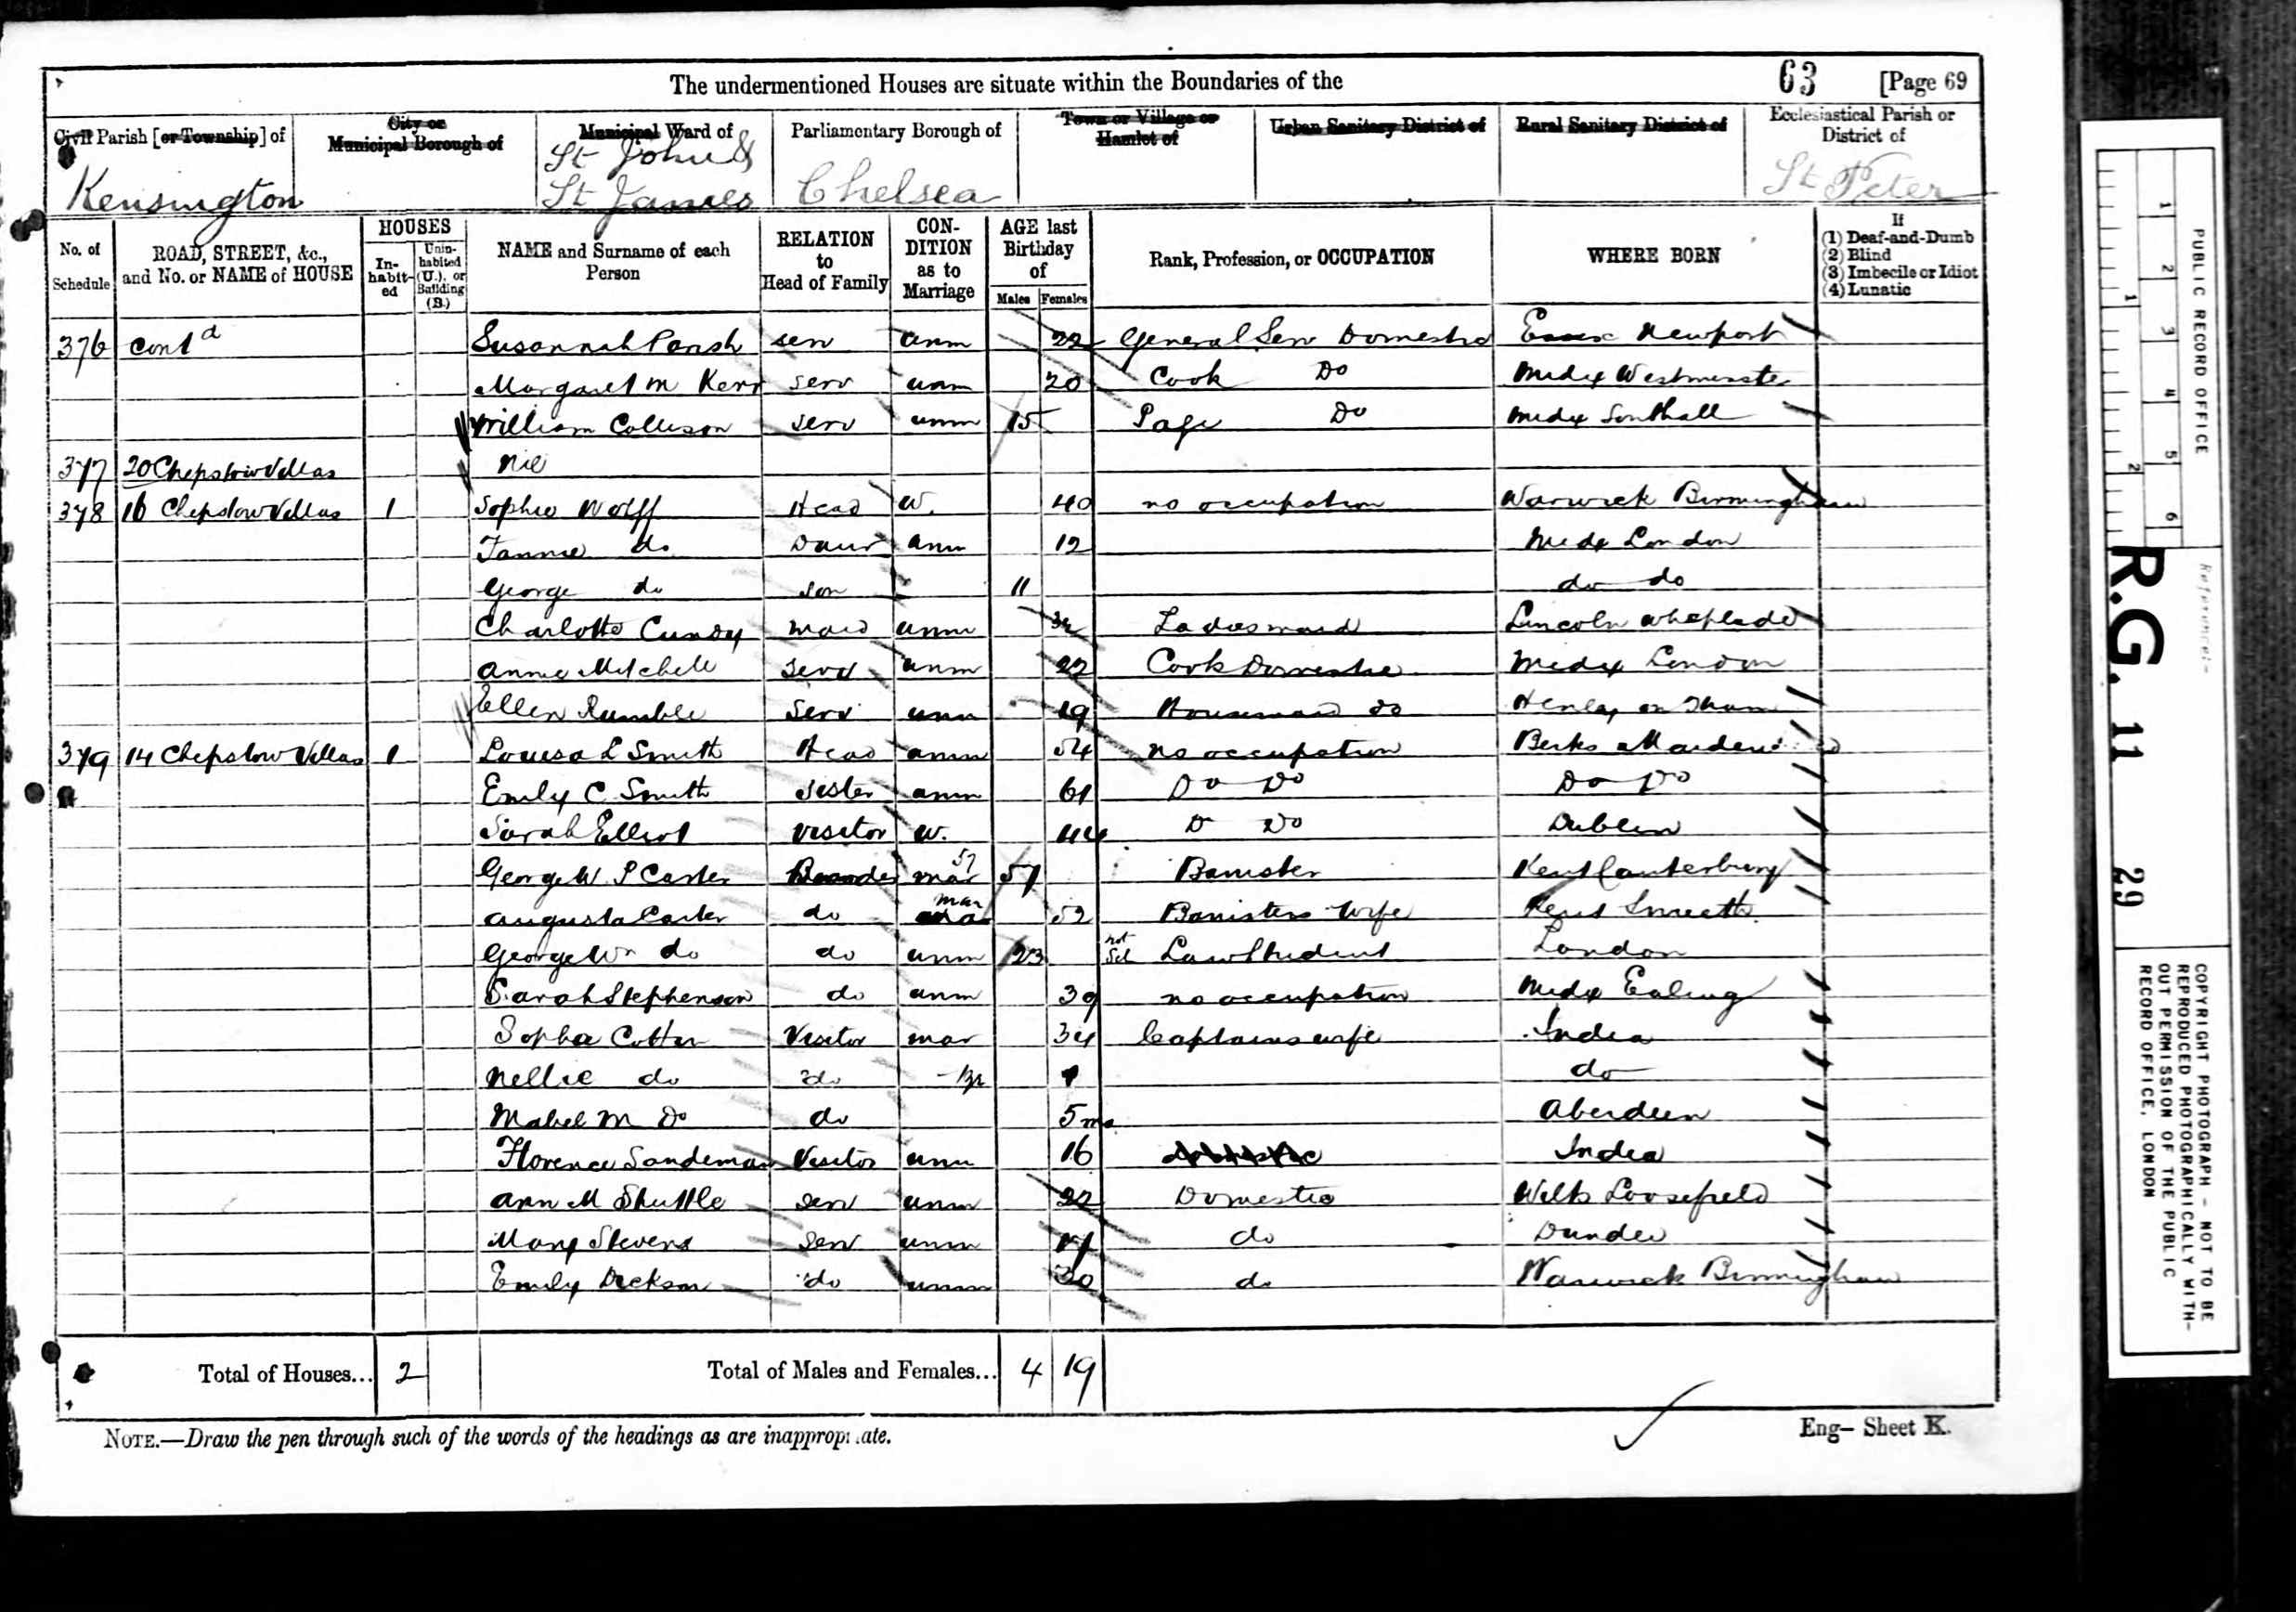 The undermentioned Houses are situate within the Boundaries of the 63 [Page 69
Civil Parish [or Township] of City or Municipal Borough of Municipal Ward of Parliamentary Borough of Town or Village or Hamlet of Urban Sanitary District of Rural Sanitary District of Ecclesiastical Parish or District of
Kensington St Johns & St James Chelsea St Peter
No. of Schedule ROAD, STREET, &c., and No. or NAME of HOUSE HOUSES Inhabited Uninhabited (U.), or Building (B.) NAME and Surname of each Person RELATION to Head of Family CONDITION as to Marriage AGE last Birthday of Males Females Rank, Profession, or OCCUPATION WHERE BORN If (1) Deaf-and-Dumb (2) Blind (3) Imbecile or Idiot (4) Lunatic
376 contd Susannah Parish serv unm 22 General Serv Domestic Essex Newport
Margaret M Kerr serv unm 20 Cook Do Midx Westminster
William Collison serv unm 15 Page Do Midx Southall
377 20 Chepstow Villas Nil
378 16 Chepstow Villas 1 Sophie Wolff Head W. 40 no occupation Warwick Birmingham
Fannie do Daur unm 12 Midx London
George do son 11 do do
Charlotte Cundy maid unm Ladies maid Lincoln Whaplode
Annie Mitchell serv unm 22 Cook Domestic Midx London
Ellen Rumble Serv unm 19 Housemaid do Henley on Tham
379 14 Chepstow Villas 1 Louisa L Smith Head unm 54 no occupation Berks
Emily C. Smith Sister unm 61 Do Do Do Do
Sarah Elliot Visitor W. 44 D Do Dublin
George W. S Carter Boarder mar 57 57 Barrister Kent Canterbury
Augusta Carter do mar 52 Barristers wife Kent Smeeth
George Wm do do unm 23 not Law Student London
Sarah Stephenson do unm 39 no occupation Midx Ealing
Sophia Cotter Visitor mar 34 Captains wife India
Nellie do do 1 do
Mabel M Do do 5 mo Aberdeen
Florence Sandeman Visitor unm 16 India
Ann M Shuttle serv unm 22 Domestic Wilts
Mary Stevens Serv unm 17 do Dundee
Emily Dickson do unm 30 do Warwick Birmingham
Total of Houses... 2 Total of Males and Females... 4 19
NOTE.—Draw the pen through such of the words of the headings as are inappropriate. Eng– Sheet K.
PUBLIC RECORD OFFICE
1 2 3 4 5 6
1 2
Reference:-
R.G. 11 29
COPYRIGHT PHOTOGRAPH – NOT TO BE
REPRODUCED PHOTOGRAPHICALLY WITH-
OUT PERMISSION OF THE PUBLIC
RECORD OFFICE, LONDON